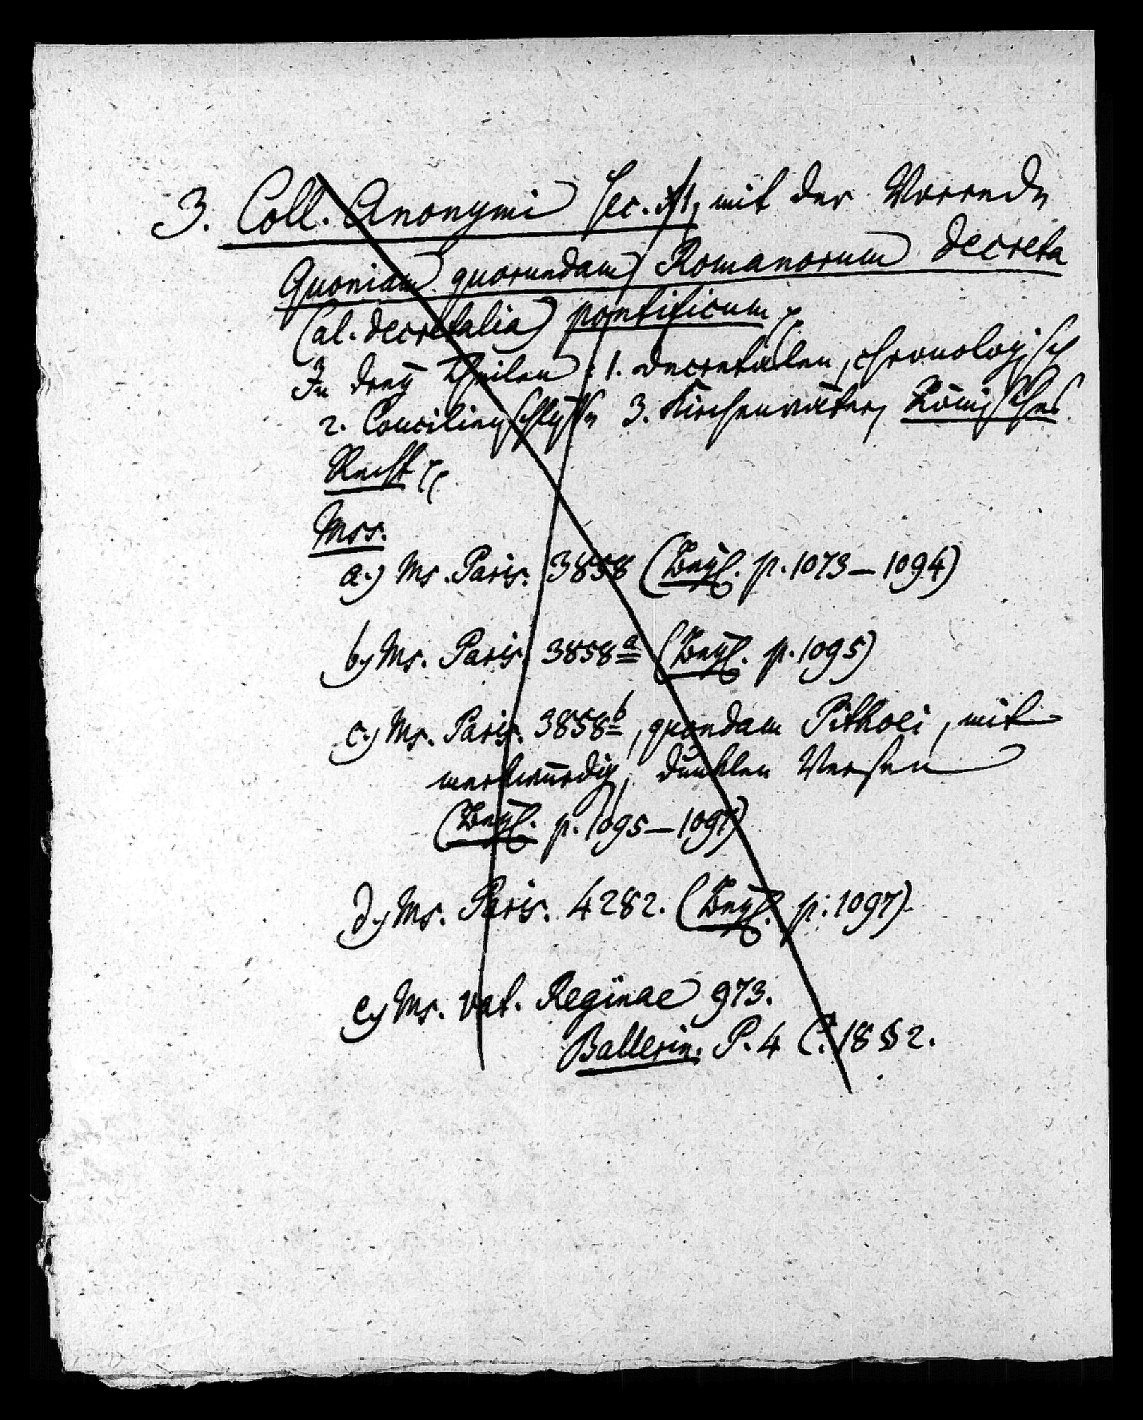 3. Coll. Anonymi sec. XI, mit der Vorrede
Quoniam quorundam Romanorum decreta
(al. decretalia) pontificum
In drey Theilen: 1. Decretalen, chronologisch
2. Concilienschlüsse 3. Kirchenväter, Römisches
Recht
Mss.
a.) Ms. Paris. 3858 (Beyl. p. 1073–1094)
b.) Ms. Paris. 3858a (Beyl. p. 1095)
c.) Ms. Paris. 3858b, quondam Pithoei, mit
merkwürdig, dunklen Versen
(Beyl. p. 1095–1097)
d.) Ms. Paris. 4282. (Beyl. p. 1097)
e.) Ms. Vat. Reginae 973.
Ballerin. P. 4 C. 18 § 2.